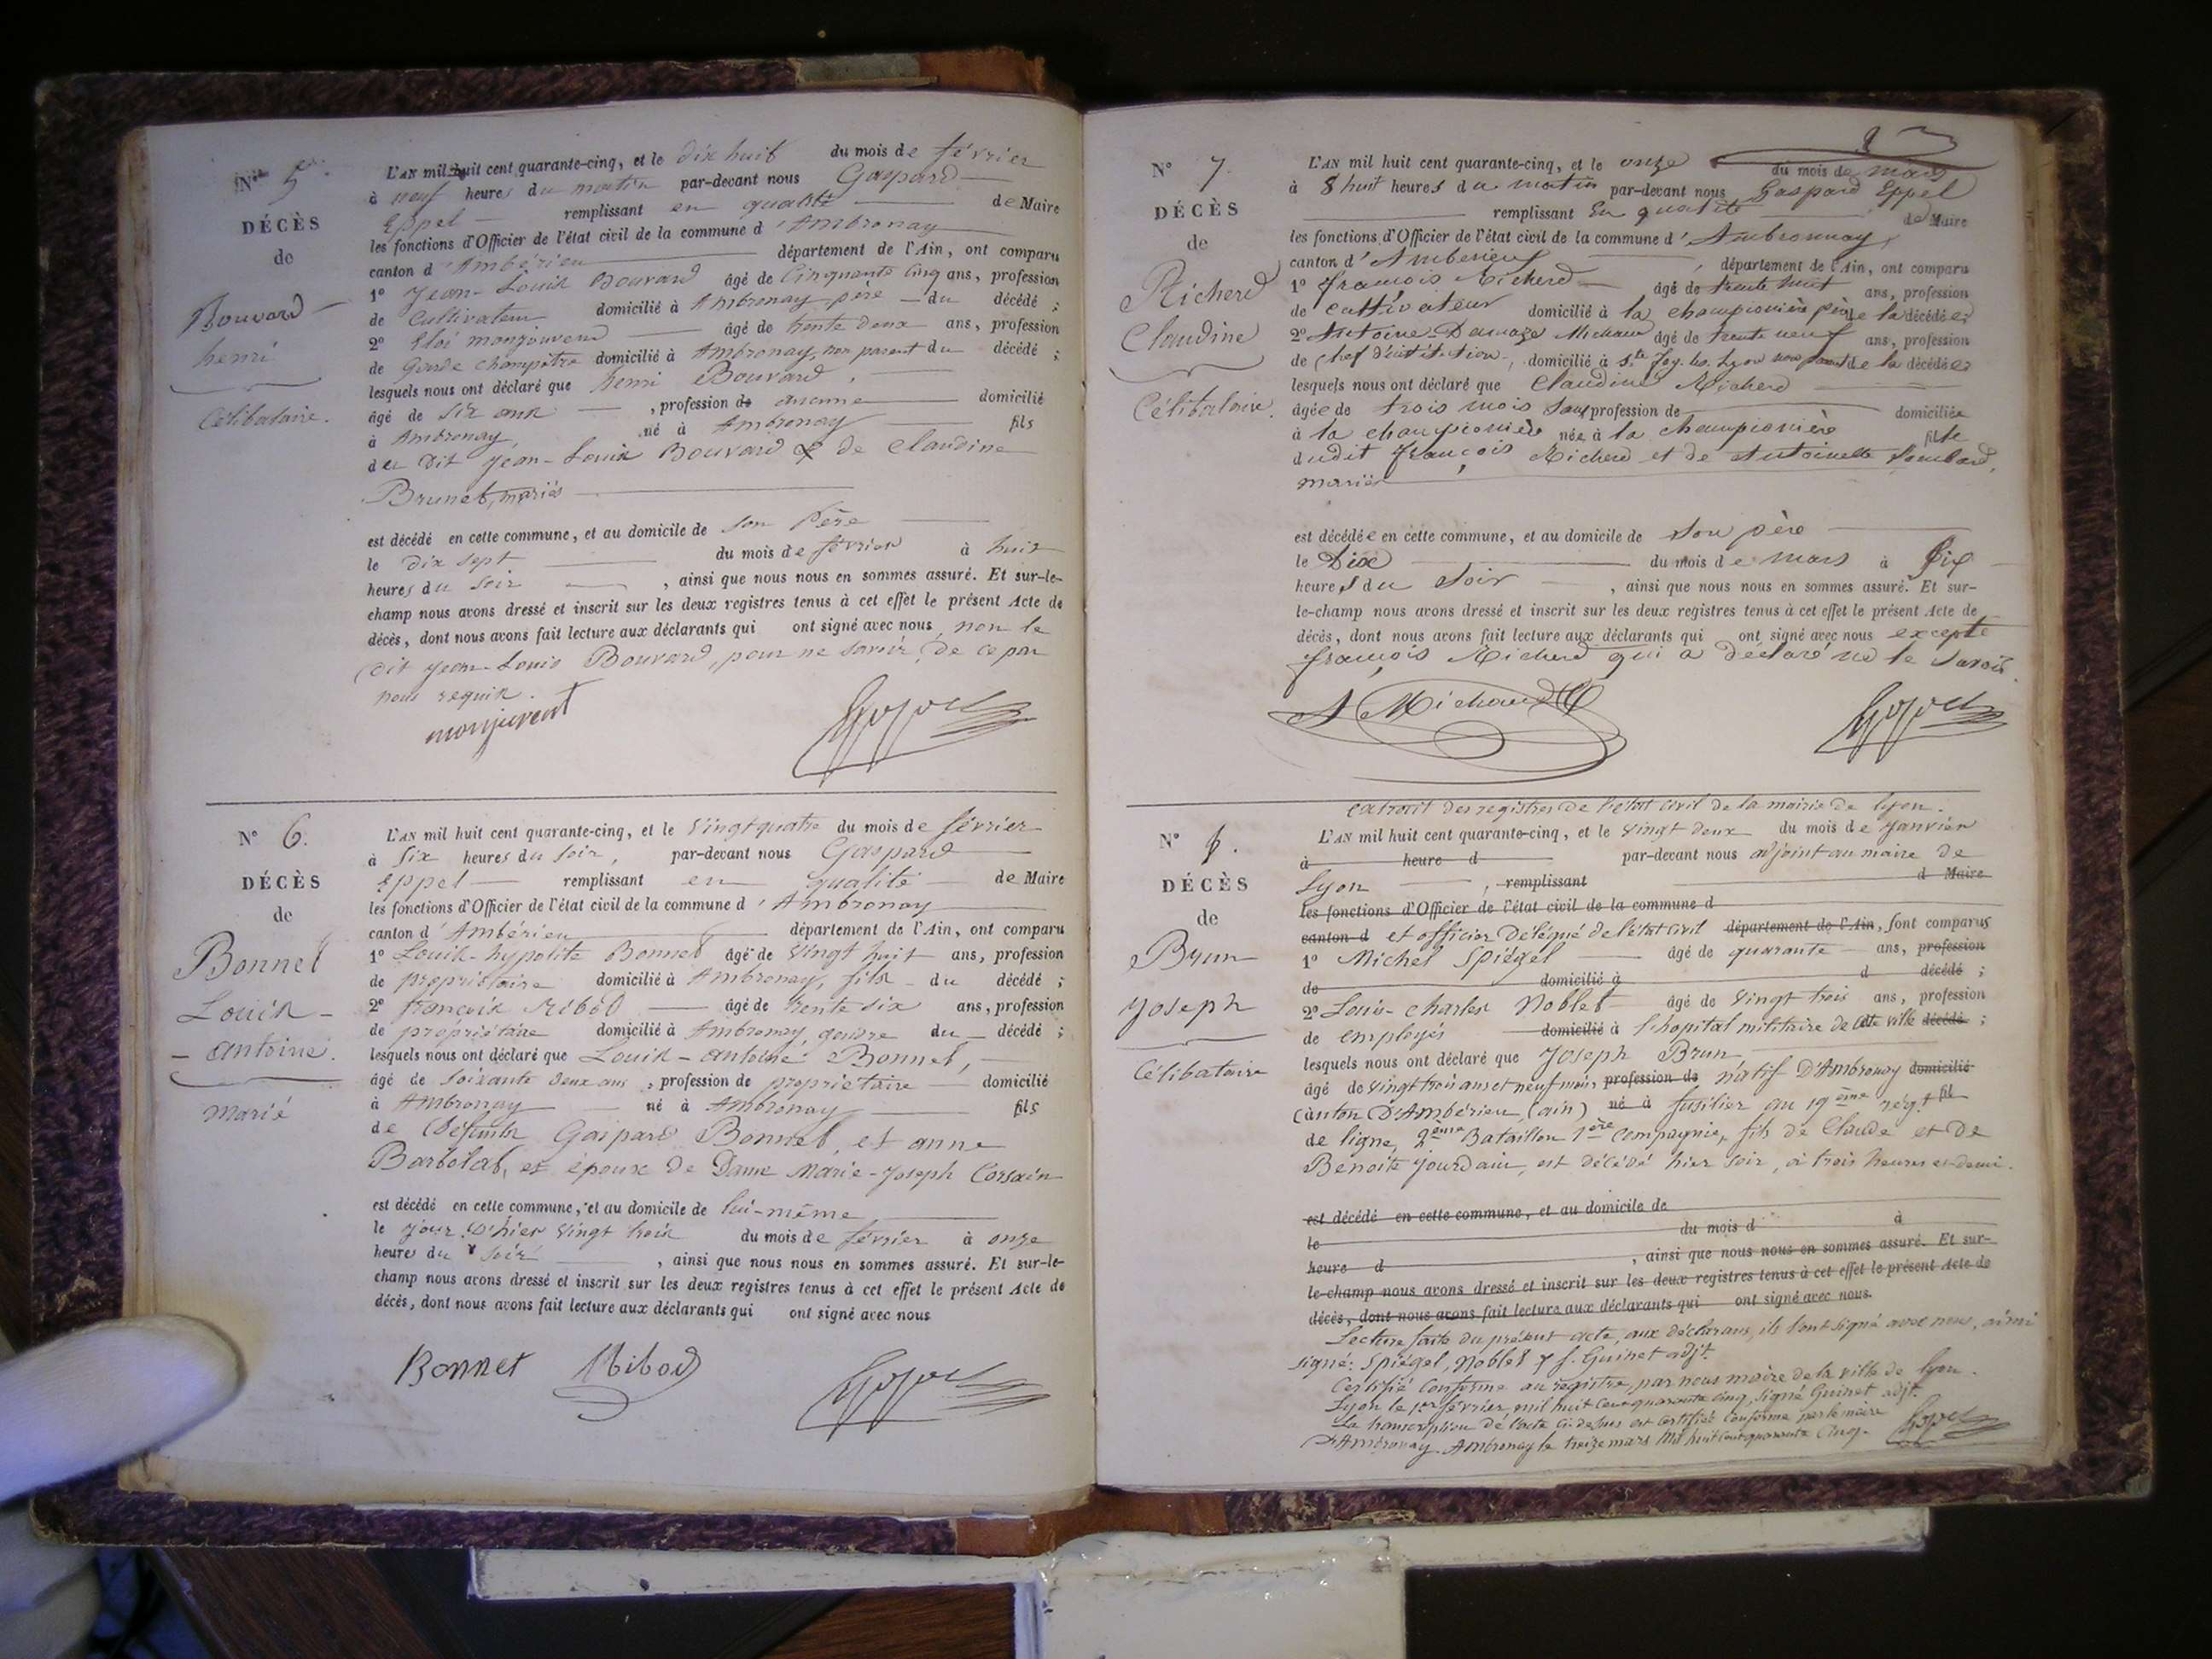 N° 5
DÉCÈS
de
Bouvard
henri
Célibataire.
L'AN mil huit cent quarante-cinq, et le dix huit du mois de février
à neuf heures du matin par-devant nous Gaspard
Eppel remplissant en qualité de Maire
les fonctions d'Officier de l'état civil de la commune d'Ambronay
canton d'Ambérieu département de l'Ain, ont comparu
1° Jean-Louis Bouvard âgé de Cinquante cinq ans, profession
de Cultivateur domicilié à Ambronay père du décédé ;
2° Eloi monjouvent âgé de trente deux ans, profession
de Garde Champêtre domicilié à Ambronay, non parent du décédé ;
lesquels nous ont déclaré que henri Bouvard,
âgé de six ans, profession de aucune domicilié
à Ambronay, né à Ambronay fils
du dit Jean-Louis Bouvard & de Claudine
Brunet, mariés
est décédé en cette commune, et au domicile de son Père
le dix sept du mois de février à huit
heures du soir, ainsi que nous nous en sommes assuré. Et sur-le-
champ nous avons dressé et inscrit sur les deux registres tenus à cet effet le présent Acte de
décès, dont nous avons fait lecture aux déclarants qui ont signé avec nous, non le
dit Jean-Louis Bouvard, pour ne savoir, de ce par
nous requis.
monjuvent
N° 6.
DÉCÈS
de
Bonnet
Louis-
-antoine.
marié
L'AN mil huit cent quarante-cinq, et le vingt quatre du mois de février
à six heures du soir, par-devant nous Gaspard
Eppel remplissant en qualité de Maire
les fonctions d'Officier de l'état civil de la commune d'Ambronay
canton d'Ambérieu département de l'Ain, ont comparu
1° Louis-hypolite Bonnet âgé de vingt huit ans, profession
de propriétaire domicilié à Ambronay, fils du décédé ;
2° françois Ribod âgé de trente six ans, profession
de propriétaire domicilié à Ambronay, gendre du décédé ;
lesquels nous ont déclaré que Louis-antoine Bonnet,
âgé de soixante deux ans, profession de propriétaire domicilié
à Ambronay né à Ambronay fils
de défunts Gaspard Bonnet, et anne
Barbolat, et époux de Dame Marie-Joseph Corsain
est décédé en cette commune, et au domicile de lui-même
le jour d'hier vingt trois du mois de février à onze
heures du soir, ainsi que nous nous en sommes assuré. Et sur-le-
champ nous avons dressé et inscrit sur les deux registres tenus à cet effet le présent Acte de
décès, dont nous avons fait lecture aux déclarants qui ont signé avec nous
Bonnet Ribod
N° 7.
DÉCÈS
de
Richerd
Claudine
Célibataire.
L'AN mil huit cent quarante-cinq, et le onze du mois de mars
à 8 huit heures du matin par-devant nous Gaspard Eppel
remplissant En qualité de Maire
les fonctions d'Officier de l'état civil de la commune d'Ambronay,
canton d'Amberieux, département de l'Ain, ont comparu
1° françois Richerd âgé de trente huit ans, profession
de cultivateur domicilié à la championière père de la décédée ;
2° Antoine-Damaze Michaud âgé de trente neuf ans, profession
de Chef d'institution, domicilié à Ste Foy-les-Lyon non parent de la décédée ;
lesquels nous ont déclaré que Claudine Richerd
âgée de trois mois sans profession de domiciliée
à la championière née à la championière fille
dudit françois Richerd et de Antoinette Lombard,
mariés
est décédée en cette commune, et au domicile de son père
le Dix du mois de mars à six
heures du soir, ainsi que nous nous en sommes assuré. Et sur-
le-champ nous avons dressé et inscrit sur les deux registres tenus à cet effet le présent Acte de
décès, dont nous avons fait lecture aux déclarants qui ont signé avec nous excepté
françois Richerd qui a déclaré ne le savoir.
A Michaud
extrait des registres de l'état civil de la mairie de lyon.
N° 8.
DÉCÈS
de
Brun
Joseph
Célibataire
L'AN mil huit cent quarante-cinq, et le vingt deux du mois de Janvier
à heure d par-devant nous adjoint au maire de
Lyon, remplissant d Maire
les fonctions d'Officier de l'état civil de la commune d
canton d et officier délégué de l'état civil département de l'Ain, sont comparus
1° Michel Spiégel âgé de quarante ans, profession
de domicilié à d décédé ;
2° Louis-charles Noblet âgé de vingt trois ans, profession
de employés domicilié à l'hopital militaire de cette ville décédé ;
lesquels nous ont déclaré que Joseph Brun
âgé de vingt trois ans et neuf mois profession de natif D'Ambronay domicilié
canton D'Ambérieu (ain) né à fusilier au 19ème régt fil
de ligne, 2ème Bataillon 1ère compagnie, fils de Claude et de
Benoite Jourdain, est décédé hier soir, à trois heures et demi.
est décédé en cette commune, et au domicile de
le du mois d à
heure d, ainsi que nous nous en sommes assuré. Et sur-
le-champ nous avons dressé et inscrit sur les deux registres tenus à cet effet le présent Acte de
décès, dont nous avons fait lecture aux déclarants qui ont signé avec nous.
Lecture faite du présent acte, aux déclarans, ils l'ont signé avec nous, ainsi
signé: Spiégel, Noblet & f. Guinet adjt.
Certifié conforme au registre, par nous maire de la ville de lyon.
Lyon le 1er février mil huit cent quarante cinq, signé Guinet adjt.
La transcription de l'acte ci-dessus est certifiée conforme par le maire
D'Ambronay. Ambronay le treize mars mil huit cent quarante cinq.